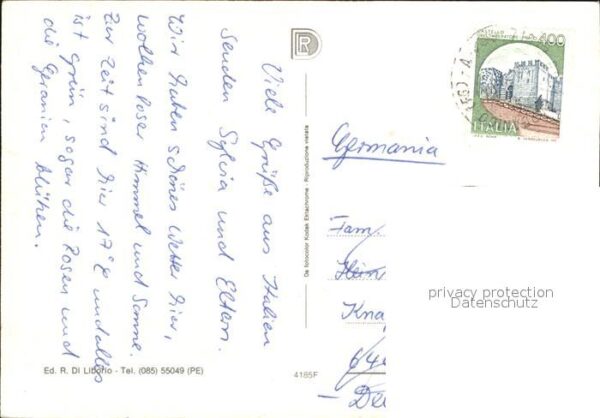 Viele Grüße aus Italien
senden Sylvia und Eltern.
Wir haben schönes Wetter hier,
wolkenloser Himmel und Sonne.
Zur Zeit sind hier 17°C und alles
ist grün, sogar die Rosen und
die Geranien blühen.
Ed. R. Di Liborio - Tel. (085) 55049 (PE)
4185F
Da fotocolor Kodak Ektachrome - Riproduzione vietata
400
ITALIA
Germania
Fam.
Hein
Kna
privacy protection
Datenschutz
644
Deu